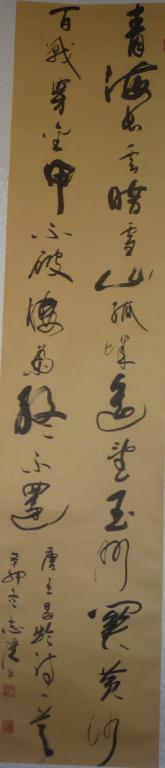 青海長云暗雪山孤城遥望玉門關黄沙
百戰穿金甲不破樓蘭終不還
唐王昌齡詩一首
辛卯冬志